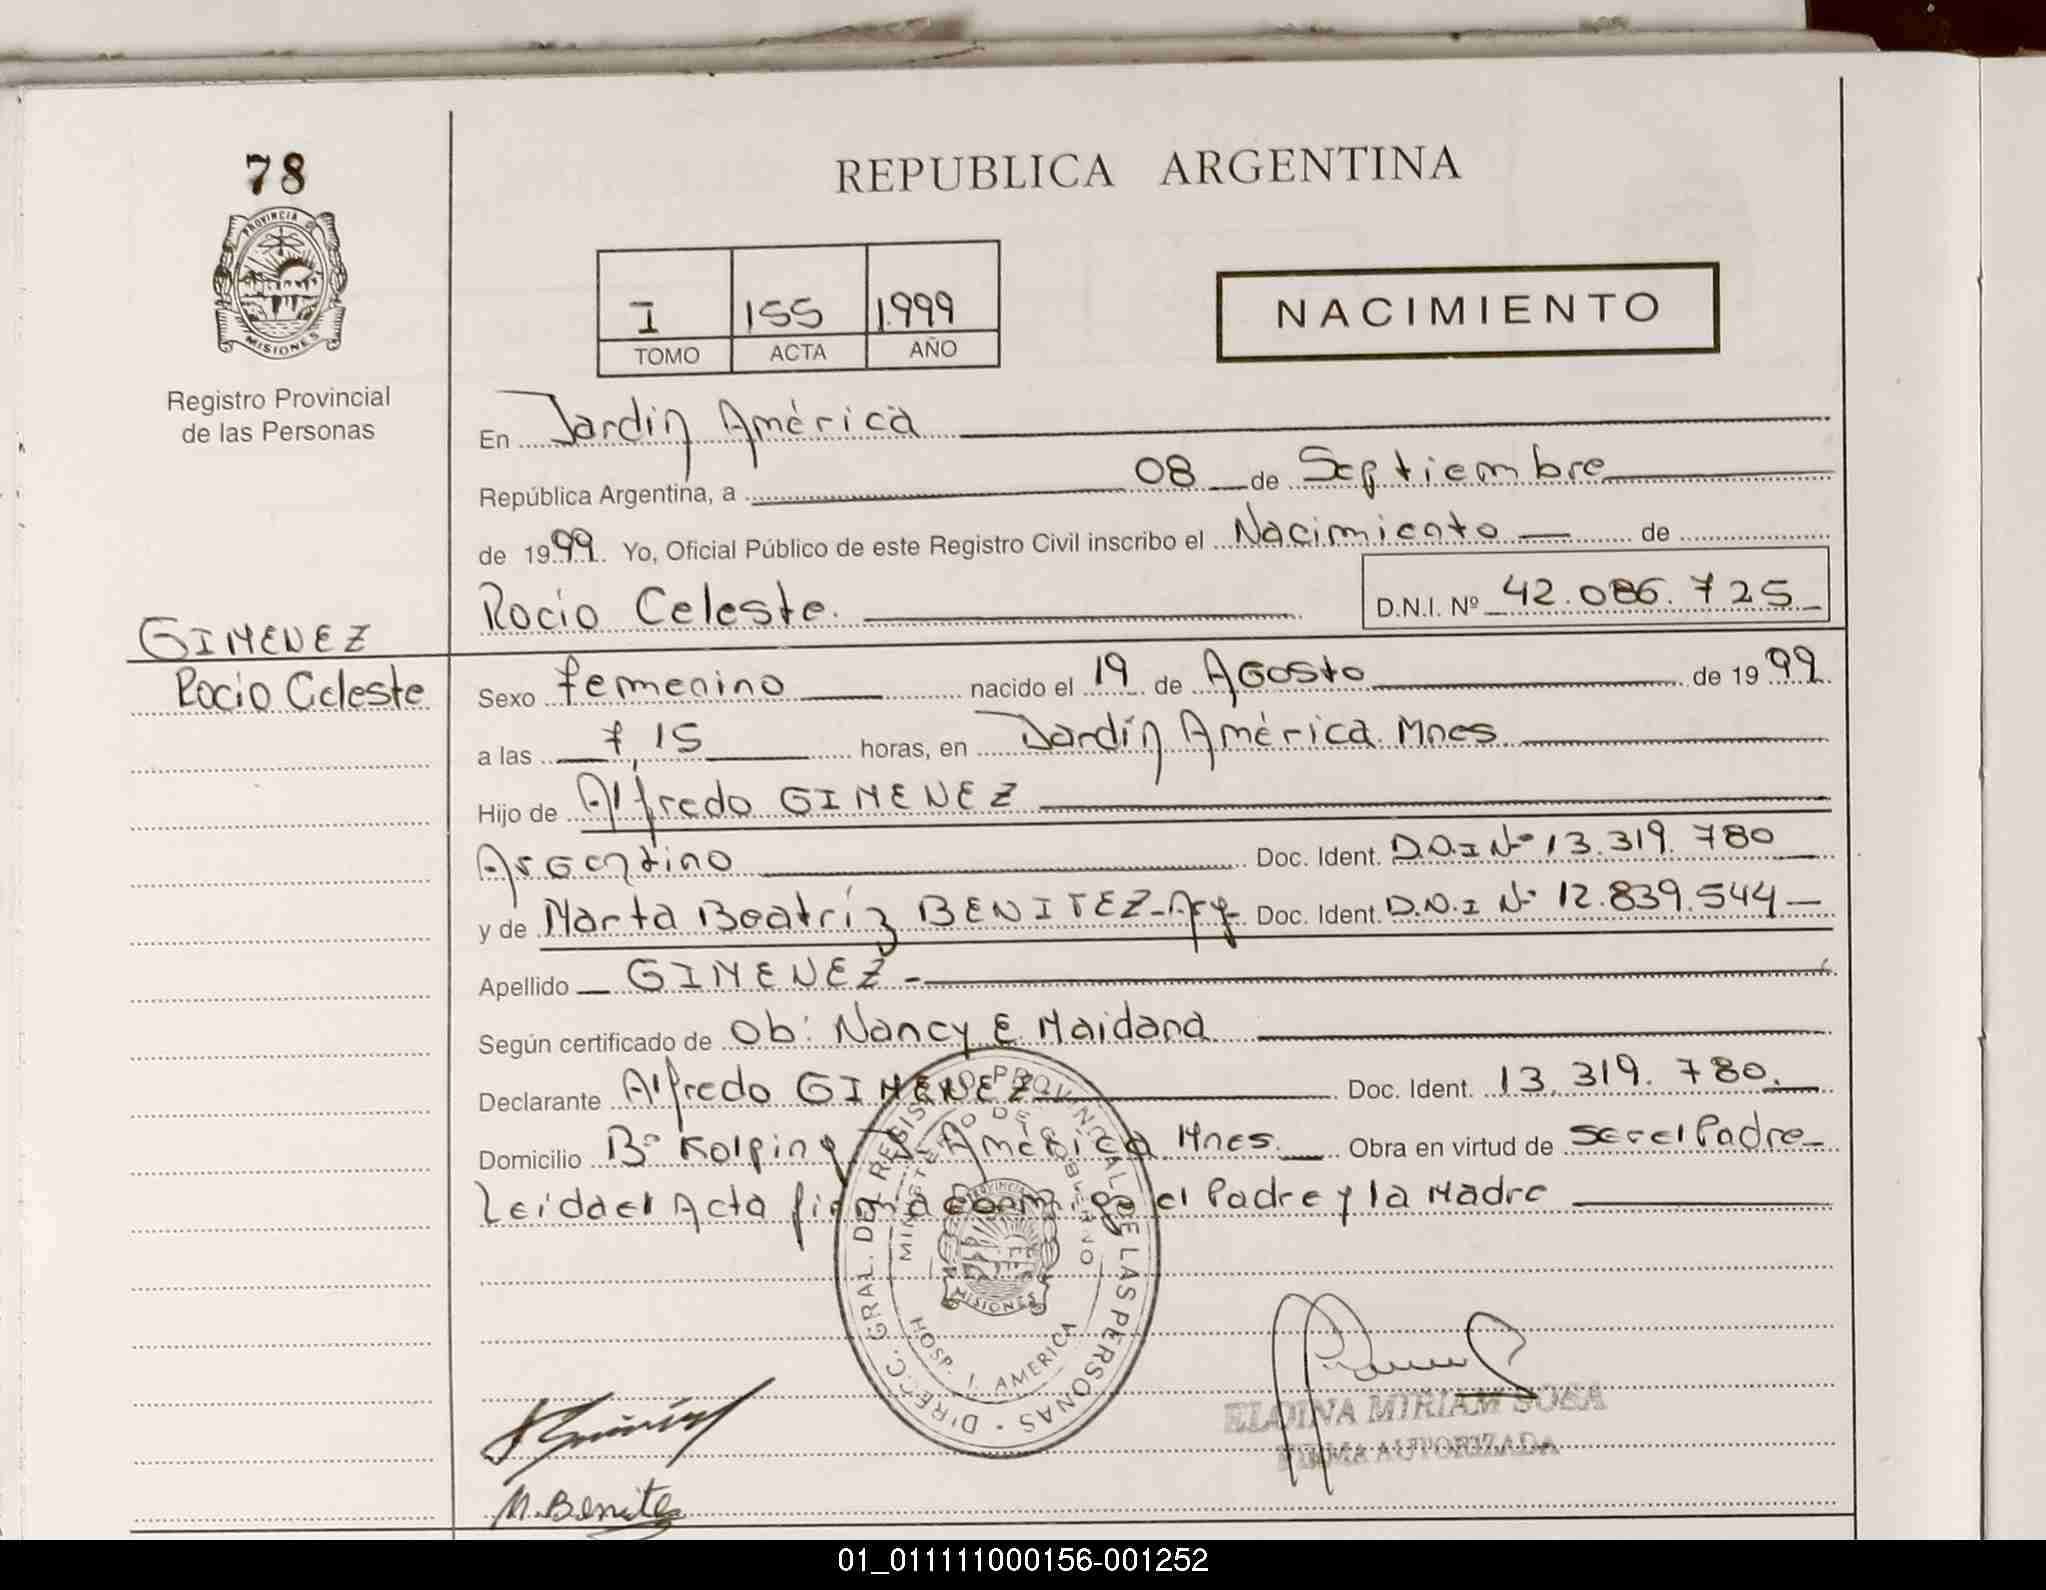 78
REPUBLICA ARGENTINA
PROVINCIA
MISIONES
Registro Provincial
de las Personas
I 155 1.999
TOMO ACTA AÑO
NACIMIENTO
En Jardin América
República Argentina, a 08 de Septiembre
de 1999. Yo, Oficial Público de este Registro Civil inscribo el Nacimiento de
Rocio Celeste. D.N.I. Nº 42.086.725
GIMENEZ
Rocio Celeste
Sexo femenino nacido el 19 de Agosto de 1999
a las 7,15 horas, en Jardín América. Mnes
Hijo de Alfredo GIMENEZ
Argentino Doc. Ident. D.N.I Nº 13.319.780
y de Marta Beatríz BENITEZ-Arg- Doc. Ident. D.N.I Nº 12.839.544
Apellido GIMENEZ-
Según certificado de Ob: Nancy E Maidana
Declarante Alfredo GIMENEZ Doc. Ident. 13.319.780.
Domicilio Bº Kolping J. América Mnes. Obra en virtud de ser el Padre
Leida el Acta firma conmigo el Padre y la Madre
DIRECC. GRAL. DEL REGISTRO PROVINCIAL DE LAS PERSONAS
MINISTERIO DE GOBIERNO
PROVINCIA
MISIONES
HOSP. J. AMERICA
ELOINA MIRIAM SOSA
FIRMA AUTORIZADA
M. Benitez
01_011111000156-001252